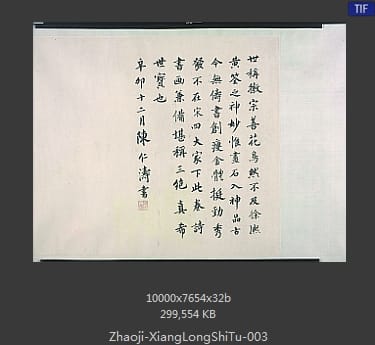 TIF
世稱徽宗善花鳥然不及徐熙
黃筌之神妙惟畫石入神品古
今無儔書創瘦金體挺勁秀
發不在宋四大家下此卷詩
書画兼備堪稱三絕真希
世寶也
辛卯十二月陳仁濤書
10000x7654x32b
299,554 KB
Zhaoji-XiangLongShiTu-003